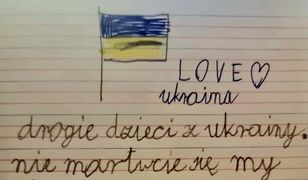 LOVE
ukraina
drogie dzieci z ukrainy.
nie martwcie się my